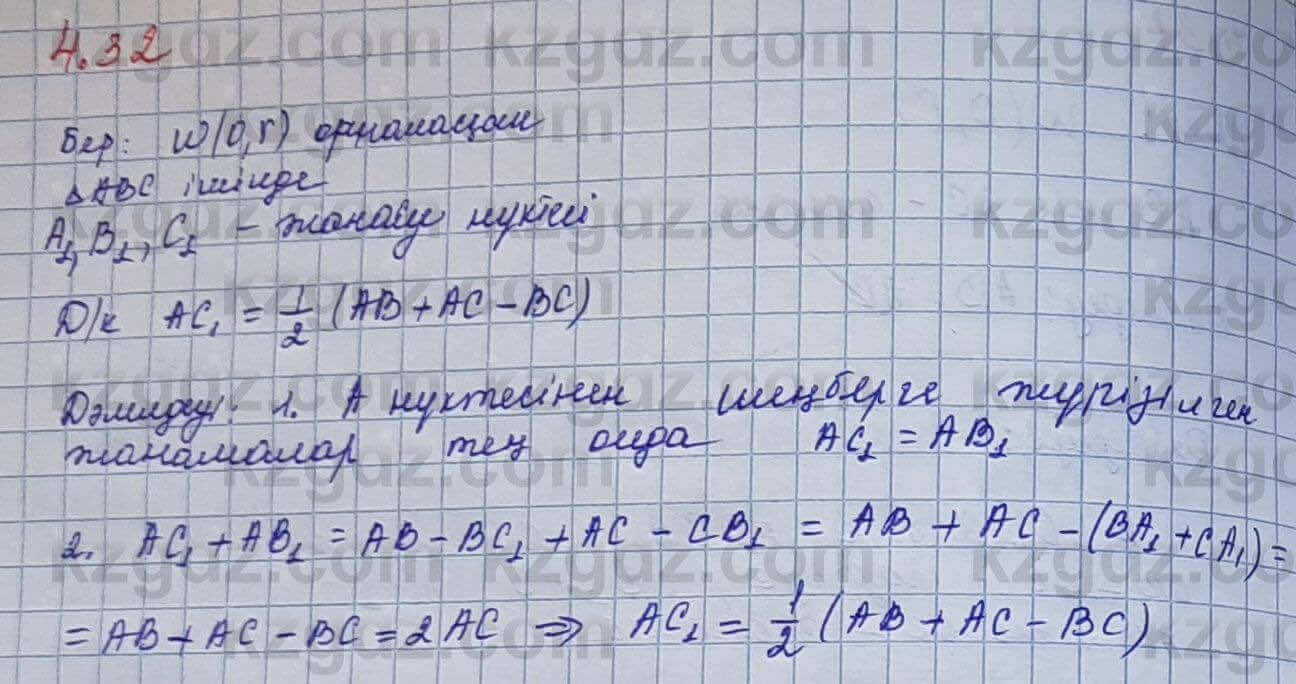 4.32
Бер: W(O,r) орналасқан
△ABC ішінде
A₁, B₁, C₁ – жанасу нүктесі
Д/к AC₁ = 1/2 (AB + AC – BC)
Дәлелдеу: 1. A нүктесінен шеңберге жүргізілген
жанамалар тең онда AC₁ = AB₁
2. AC₁ + AB₁ = AB – BC₁ + AC – CB₁ = AB + AC – (BA₁ + CA₁) =
= AB + AC – BC = 2AC ⇒ AC₁ = 1/2 (AB + AC – BC)
kzgdz.com